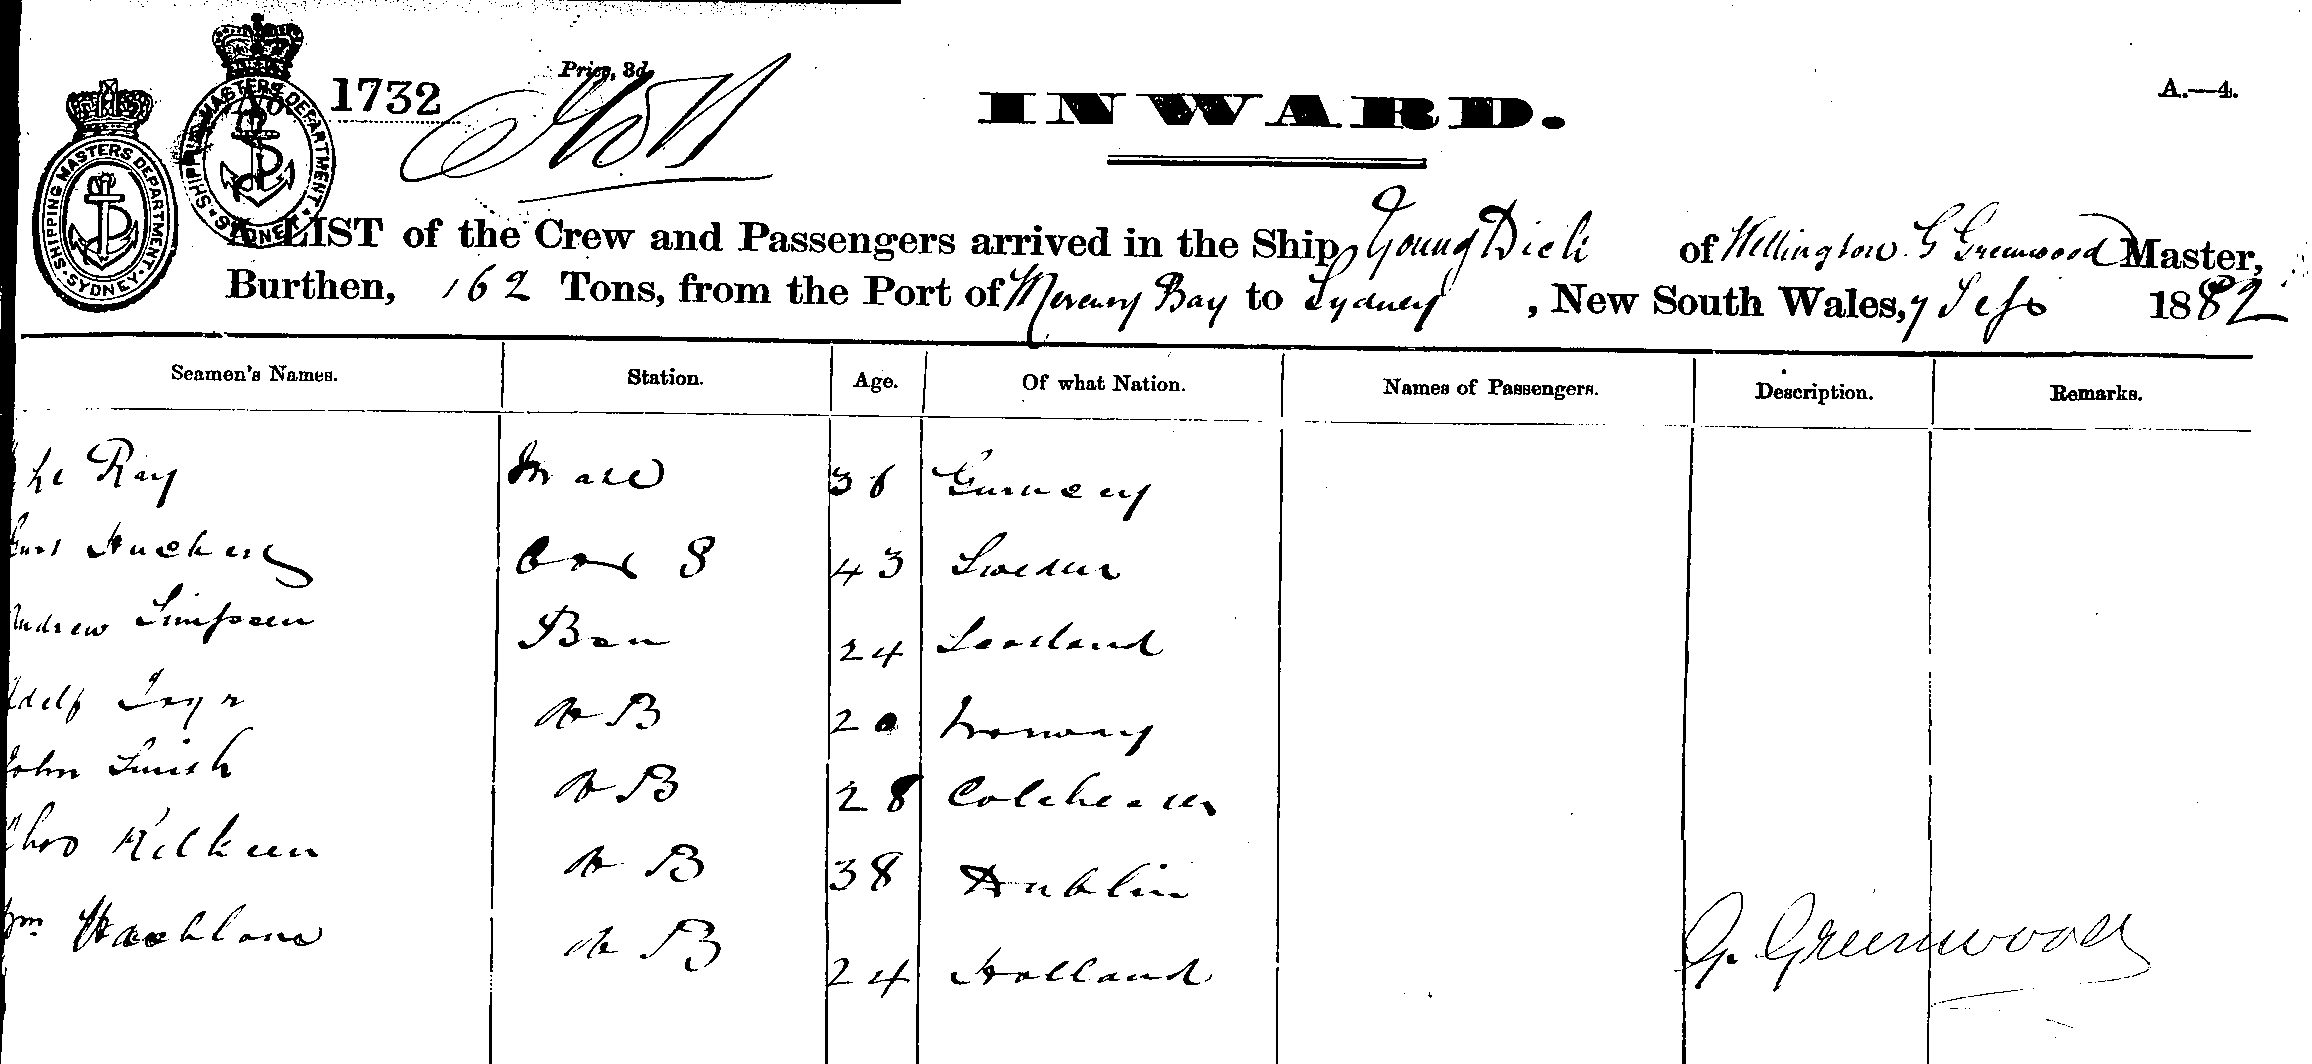 SHIPPING MASTERS DEPARTMENT · SYDNEY ·
SHIPPING MASTERS DEPARTMENT · SYDNEY ·
No 1732
Price, 3d.
INWARD.
A.—4.
A LIST of the Crew and Passengers arrived in the Ship Young Dick of Wellington G Greenwood Master,
Burthen, 162 Tons, from the Port of Mercury Bay to Sydney, New South Wales, 7 Sep 1882
Seamen's Names. Station. Age. Of what Nation. Names of Passengers. Description. Remarks.
Ray Mate Gurnsey
43 Sweden
Andrew Simpson 24 Scotland
Adolf AB 20 Norway
John Smith AB 28 Colchester
Thos Kilkeen AB 38 Dublin
Wm AB 24 Holland
G. Greenwood